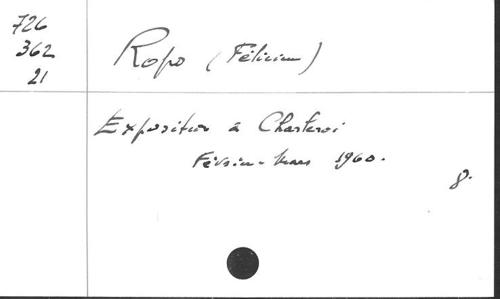 726
362
21
Rops (Félicien)
Exposition à Charleroi
Février-Mars 1960.
8.